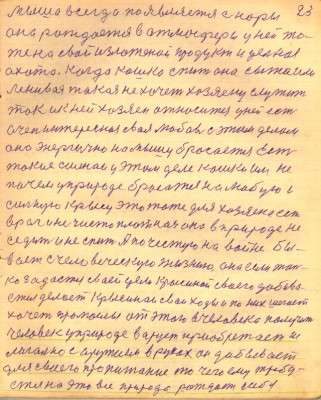 23
мыша всегда появляется с норы
она рождается в атмосфере у ней то
же на свой изложеной продукт и целая
охота. Когда кошка спит она сыта или
ленивая такая не хочет хозяену служить
так и к ней хозяен относится у ней есть
очен интересная своя любовь с этим делом
она энергично на мышу бросается. Есть
такие сильные у этом деле кошки им не
почем у природе бросается на любую и
сильную крысу это тоже для хозяена есть
враг и нечистоплотная она в природе не
седит и не спит. А почестную на войне бы-
вает с человеческую жизнию, она если толь-
ко задастся своей цели красиной своего добива
стии делает кровеные свои ходы а по них шагает
хочет промоины от этого а человек получит
человек у природе ворует приобретает и
лигално с оружием в руках он добывает
для своего пропитание то чего ему требу-
стся на это вся природа рождает себя